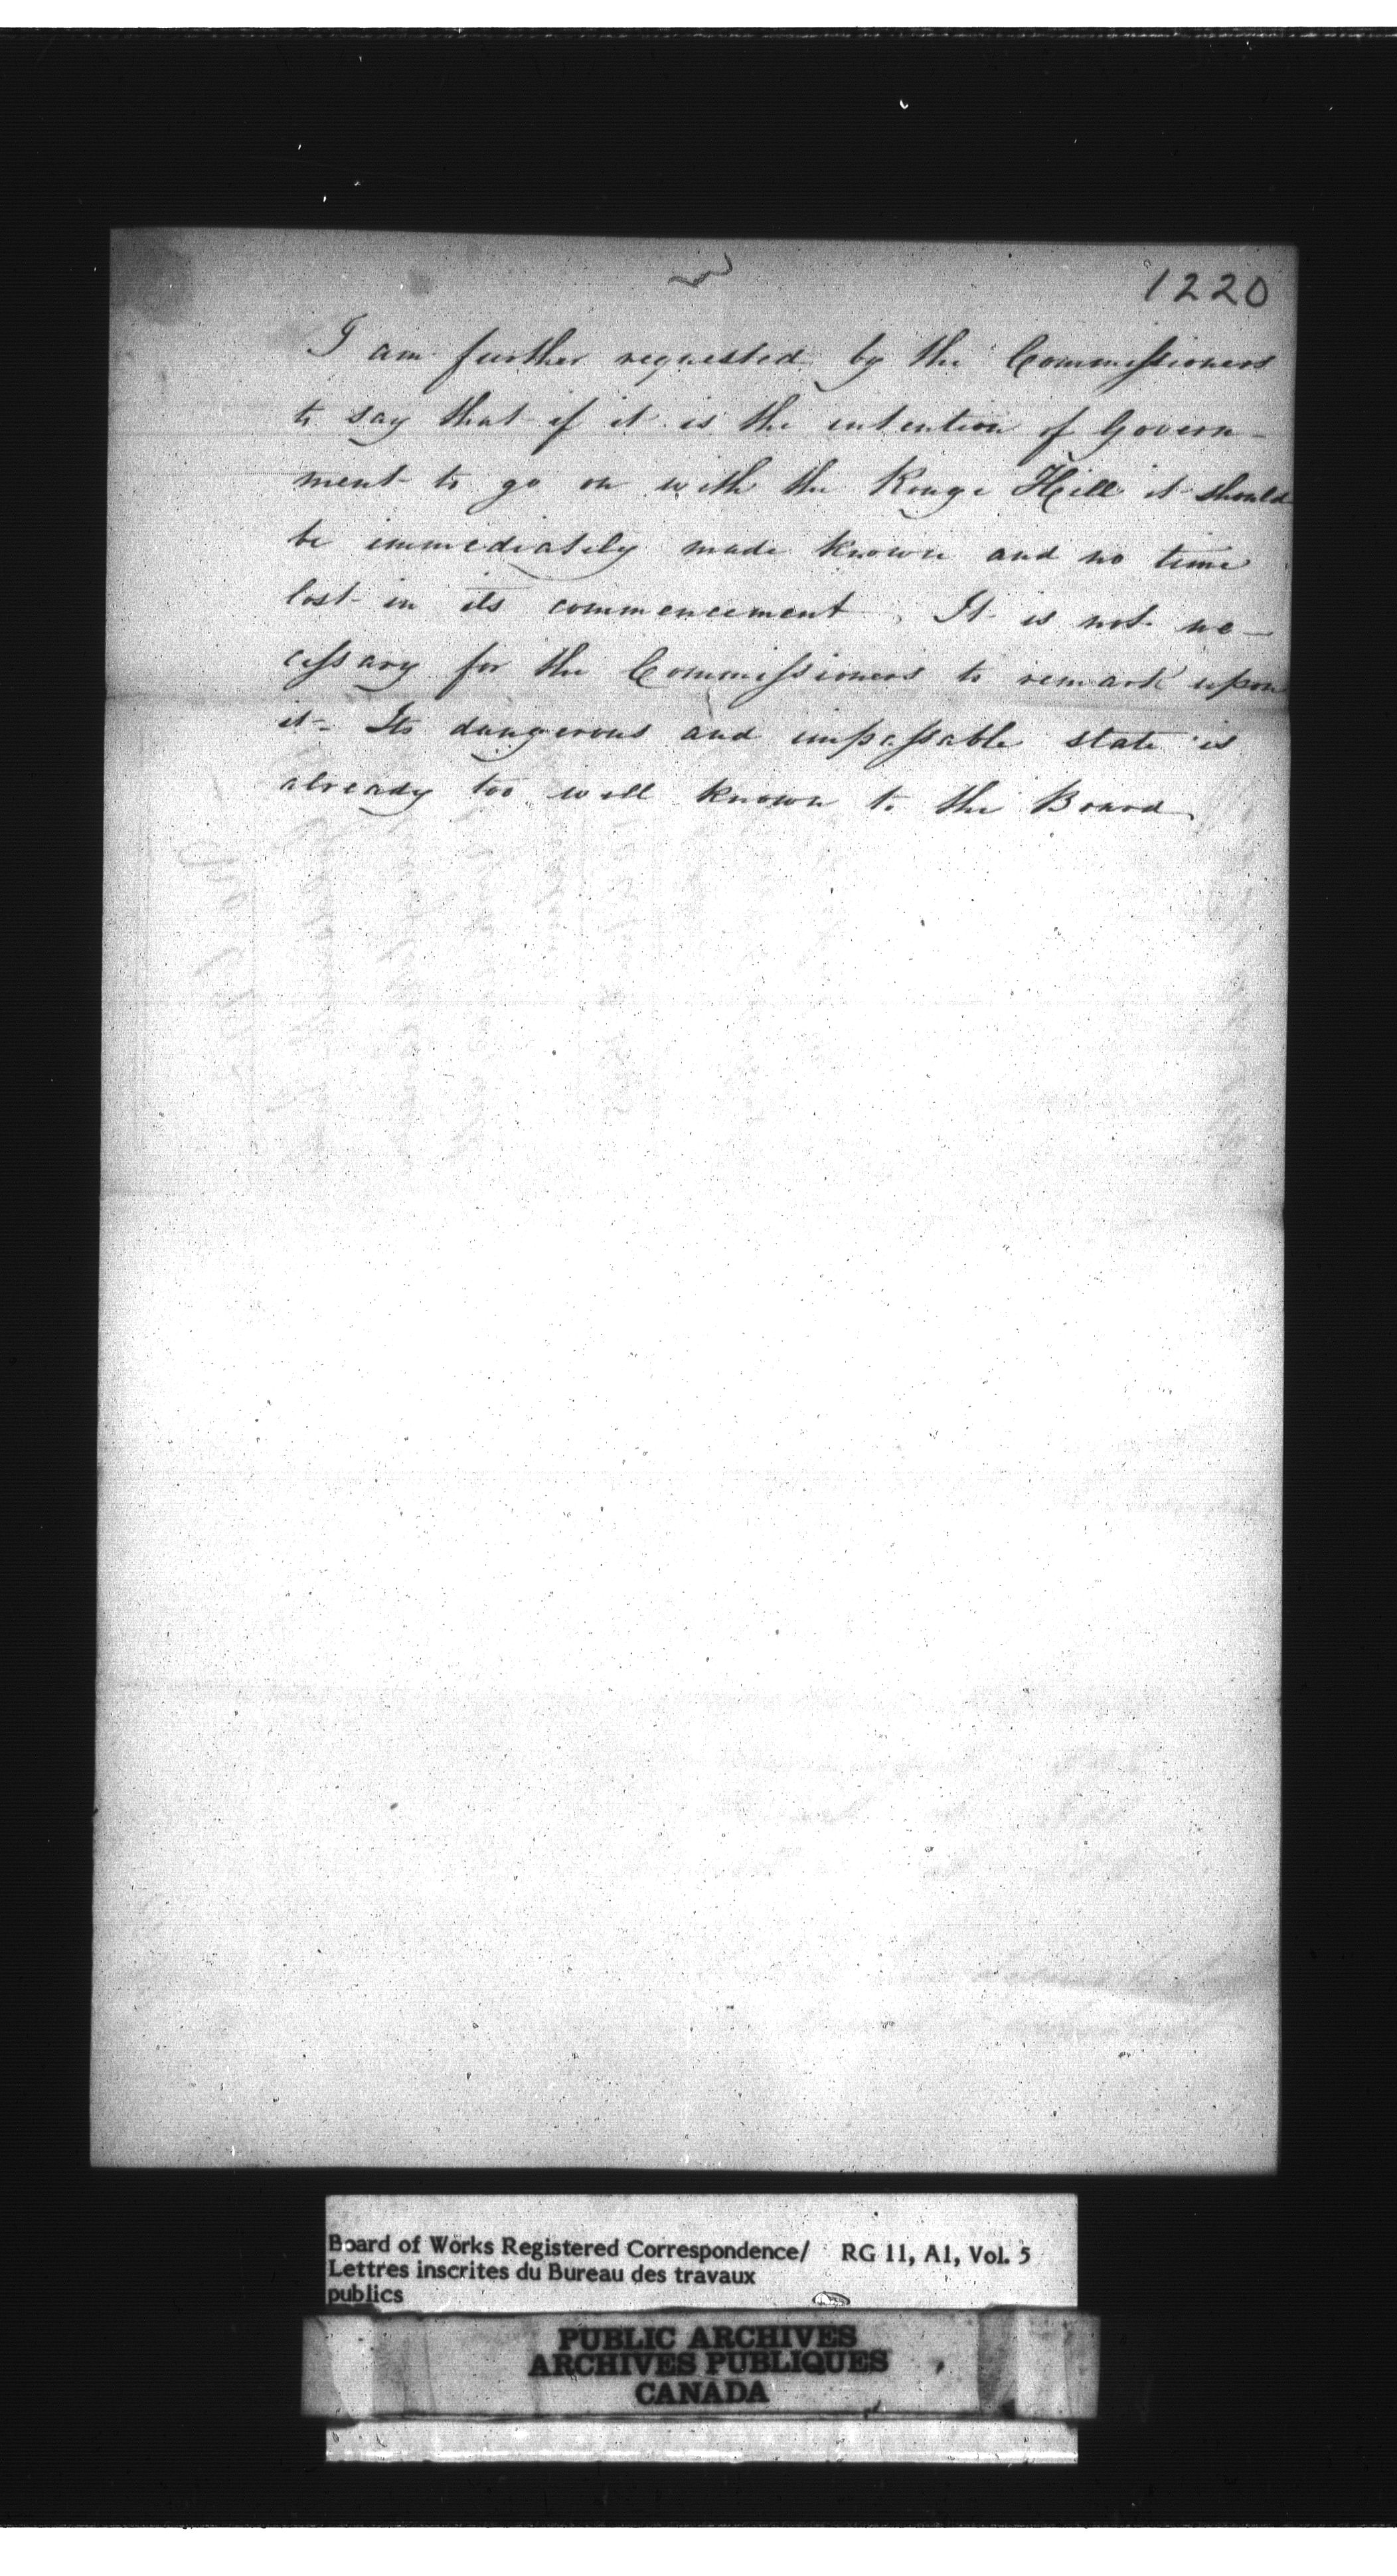 1220
I am further requested by the Commissioners
to say that if it is the intention of Govern-
ment to go on with the Rouge Hill it should
be immediately made known and no time
lost in its commencement. It is not ne-
cessary for the Commissioners to remark upon
it - Its dangerous and impassable state is
already too well known to the Board
Board of Works Registered Correspondence/ RG 11, A1, Vol. 5
Lettres inscrites du Bureau des travaux
publics
PUBLIC ARCHIVES
ARCHIVES PUBLIQUES
CANADA